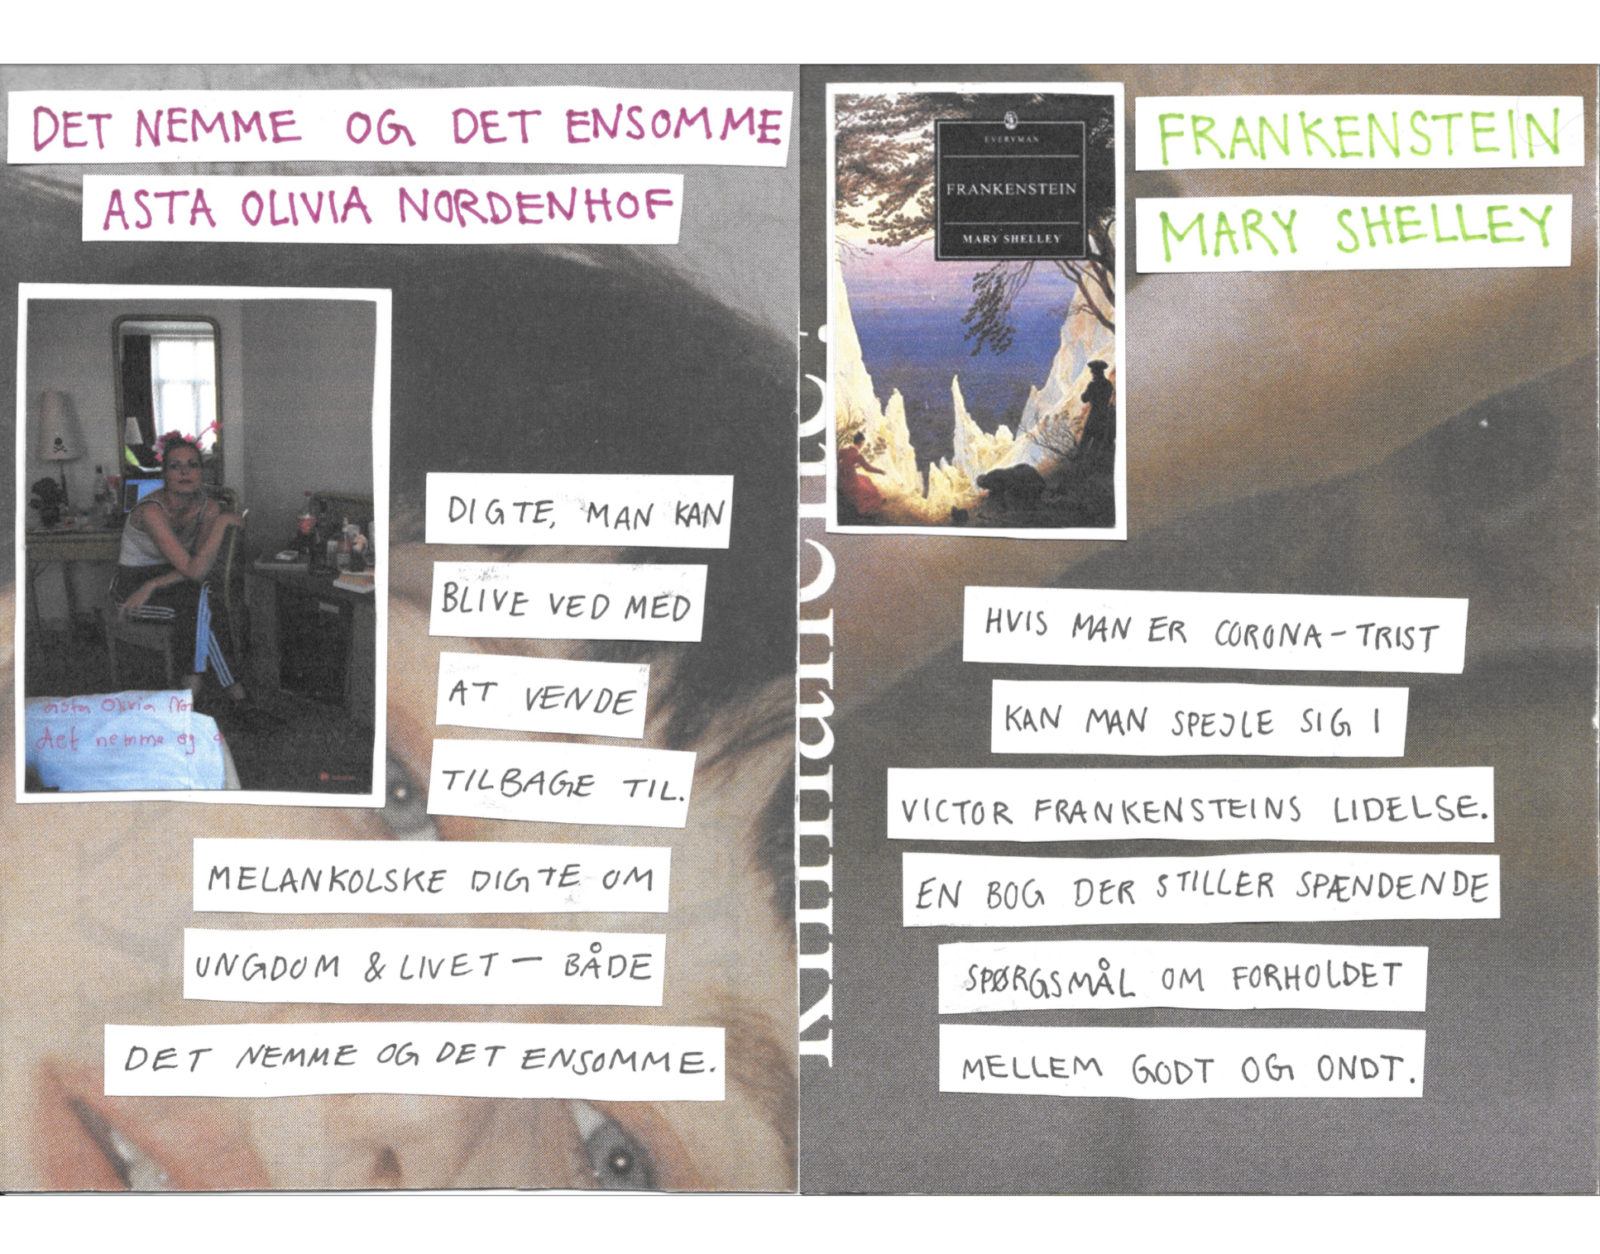 DET NEMME OG DET ENSOMME
ASTA OLIVIA NORDENHOF
asta Olivia No
det nemme og d
DIGTE, MAN KAN
BLIVE VED MED
AT VENDE
TILBAGE TIL.
MELANKOLSKE DIGTE OM
UNGDOM & LIVET – BÅDE
DET NEMME OG DET ENSOMME.
EVERYMAN
FRANKENSTEIN
MARY SHELLEY
FRANKENSTEIN
MARY SHELLEY
HVIS MAN ER CORONA-TRIST
KAN MAN SPEJLE SIG I
VICTOR FRANKENSTEINS LIDELSE.
EN BOG DER STILLER SPÆNDENDE
SPØRGSMÅL OM FORHOLDET
MELLEM GODT OG ONDT.